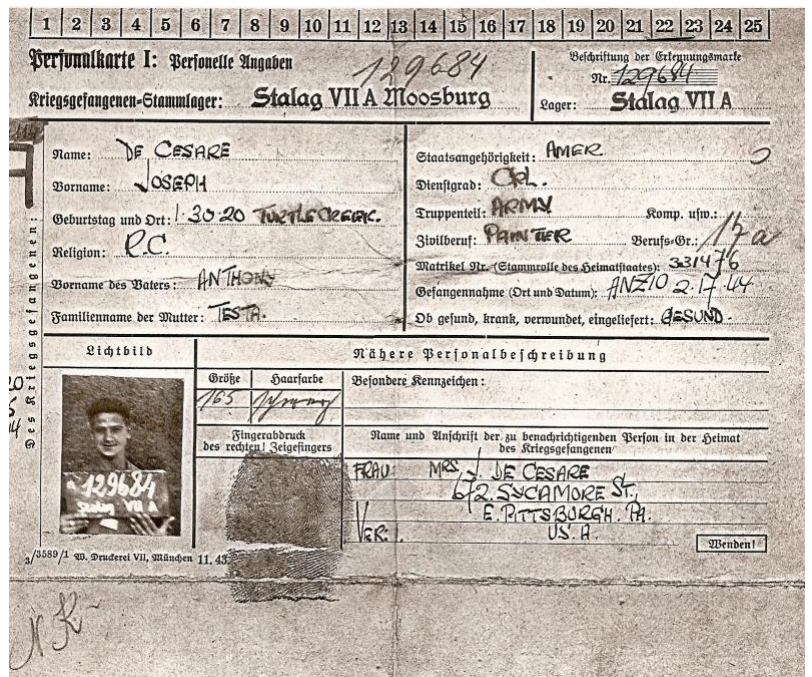 1 2 3 4 5 6 7 8 9 10 11 12 13 14 15 16 17 18 19 20 21 22 23 24 25
Personalkarte I: Personelle Angaben
129684
Beschriftung der Erkennungsmarke
Nr. 129684
Kriegsgefangenen-Stammlager: Stalag VII A Moosburg
Lager: Stalag VII A
Des Kriegsgefangenen:
Name: DE CESARE
Vorname: JOSEPH
Geburtstag und Ort: 1-30-20 TURTLE CREEK.
Religion: R.C.
Vorname des Vaters: ANTHONY
Familienname der Mutter: TESTA.
Staatsangehörigkeit: AMER.
Dienstgrad: CPL.
Truppenteil: ARMY Komp. usw.:
Zivilberuf: PAINTER Berufs-Gr.: 17a
Matrikel Nr. (Stammrolle des Heimatstaates): 331476
Gefangennahme (Ort und Datum): ANZIO 2.17.44
Ob gesund, krank, verwundet, eingeliefert: GESUND-
Lichtbild
129684
Stalag VII A
Nähere Personalbeschreibung
Größe Haarfarbe Besondere Kennzeichen:
165 schwarz
Fingerabdruck
des rechten! Zeigefingers
Name und Anschrift der zu benachrichtigenden Person in der Heimat
des Kriegsgefangenen
FRAU: MRS. J. DE CESARE
672 SYCAMORE ST.,
E. PITTSBURGH. PA.
VER: US. A.
Wenden!
3/3589/1 W. Druckerei VII, München 11. 43.